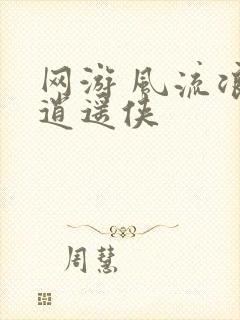 网游风流浪
道遥侠
周慧